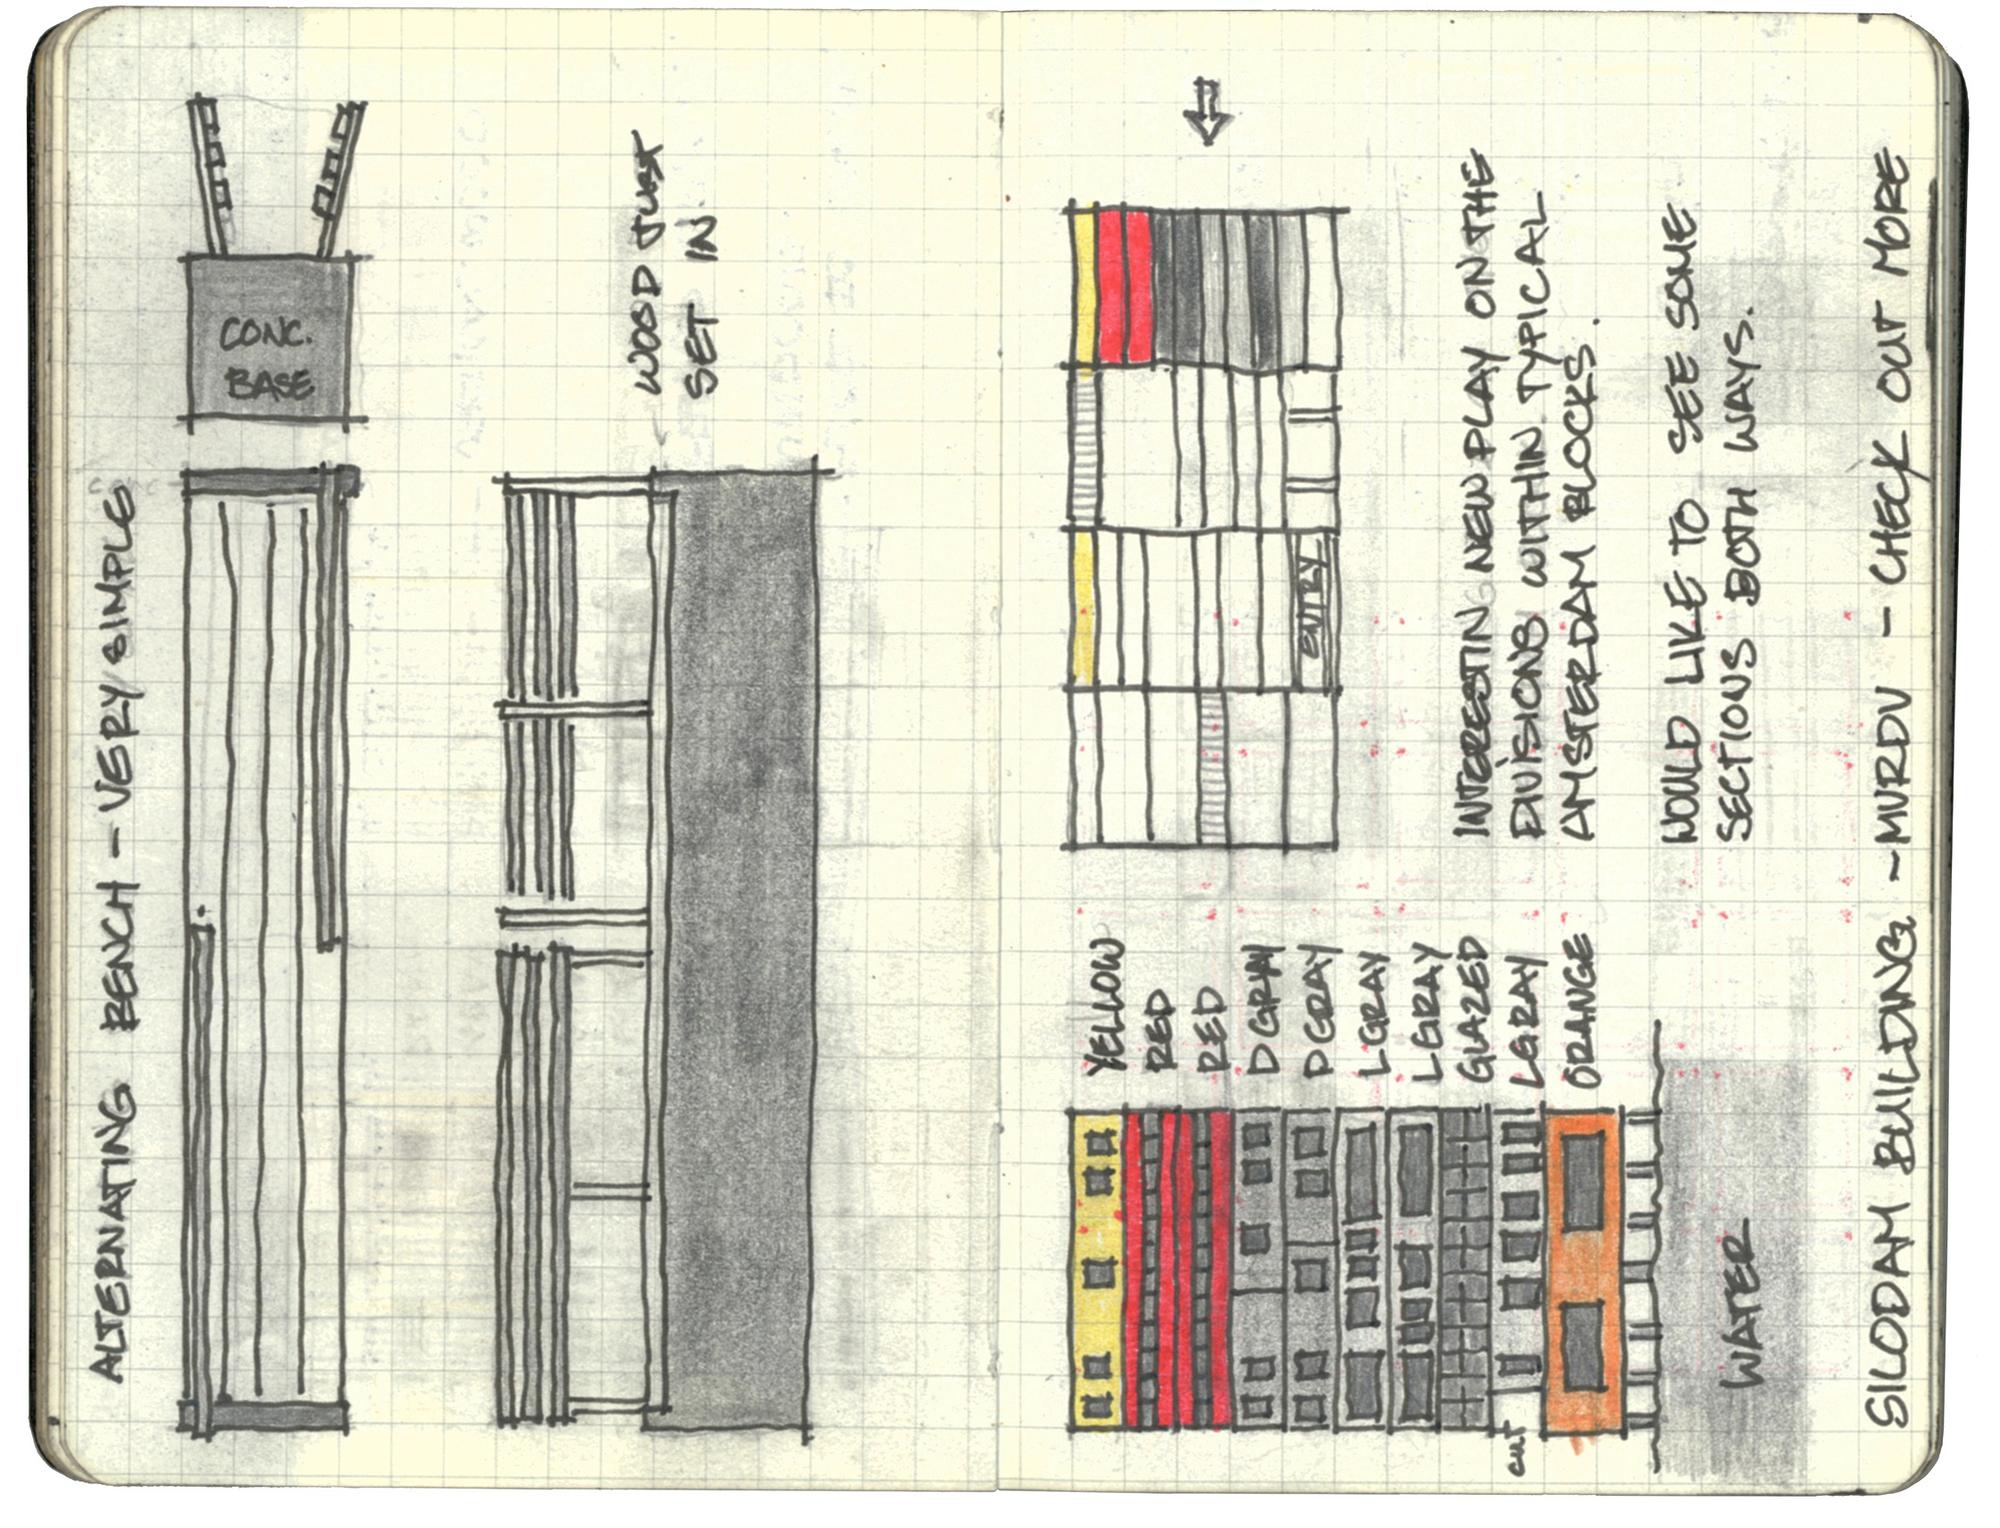 ALTERNATING BENCH - VERY SIMPLE
CONC.
BASE
WOOD JUST
SET IN.
YELLOW
RED
RED
D GRAY
D GRAY
L GRAY
L GRAY
GLAZED
L GRAY
ORANGE
CUT
WATER
ENTRY
INTERESTING NEW PLAY ON THE
DIVISIONS WITHIN TYPICAL
AMSTERDAM BLOCKS.
WOULD LIKE TO SEE SOME
SECTIONS BOTH WAYS.
SILODAM BUILDING - MVRDV - CHECK OUT MORE